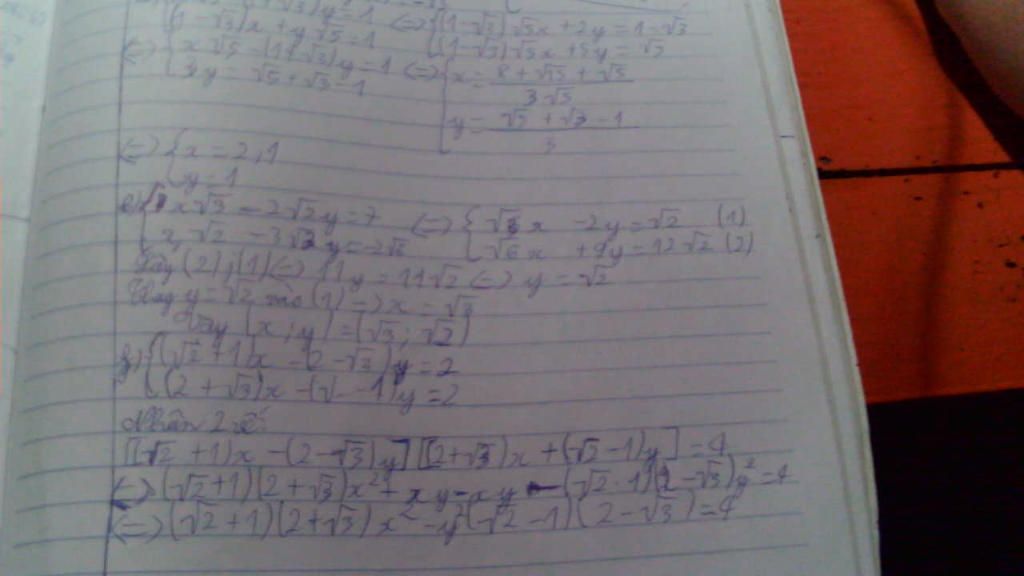 (1-√3)x + y√5 = 1 (=) (1-√3)√5x + 5y = √5
(=) { x√5 - (1+√3)y = 1 (=) { x = 8 + √15 + √5 / 3√5
3y = √5 + √3 - 1
y = √5 + √3 - 1 / 3
(=) { x = 2,1
y = 1
x√3 - 2√2y = 7 (=) { √6x - 2y = √2 (1)
x√2 - 3√3y = -2√6 √6x + 9y = 12√2 (2)
Lấy (2);(1) (=) 11y = 11√2 (=) y = √2
Thay y = √2 vào (1) => x = √3
Vậy (x;y) = (√3; √2)
f) { (√2+1)x - (2-√3)y = 2
(2+√3)x - (√ -1)y = 2
Nhân 2 vế:
[(√2+1)x - (2-√3)y] [(2+√3)x + (√2-1)y] = 4
(=) (√2+1)(2+√3)x² + xy - xy - (√2-1)(2-√3)y² = 4
(=) (√2+1)(2+√3)x² - y²(√2-1)(2-√3) = 4